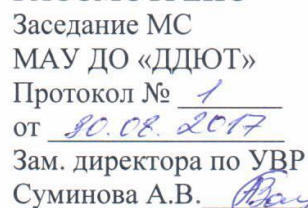 Заседание МС
МАУ ДО «ДДЮТ»
Протокол № 1
от 30.08.2017
Зам. директора по УВР
Суминова А.В.